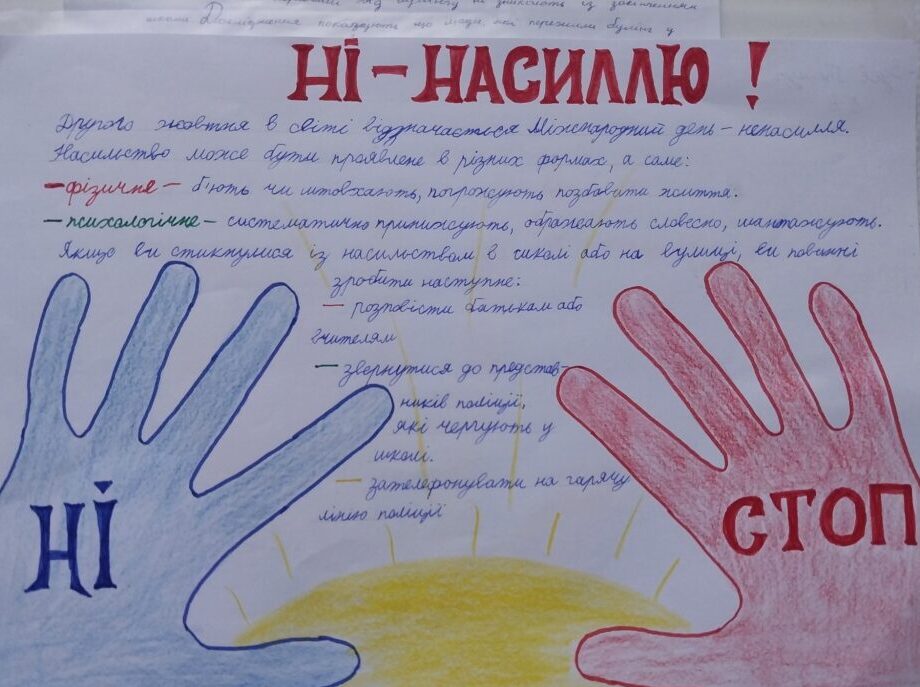 школи Дослідження показують що люди, які пережили булінг у
НІ-НАСИЛЛЮ !
Другого жовтня в світі відзначається Міжнародний день - ненасилля.
Насильство може бути проявлене в різних формах, а саме:
- фізичне - б'ють чи штовхають, погрожують позбавити життя.
- психологічне - систематично принижують, ображають словесно, шантажують.
Якщо ви стикнулися із насильством в школі або на вулиці, ви повинні
зробити наступне:
- розповісти батькам або
вчителям
- звернутися до представ-
ників поліції,
які чергують у
школі.
- зателефонувати на гарячу
лінію поліції
НІ
СТОП